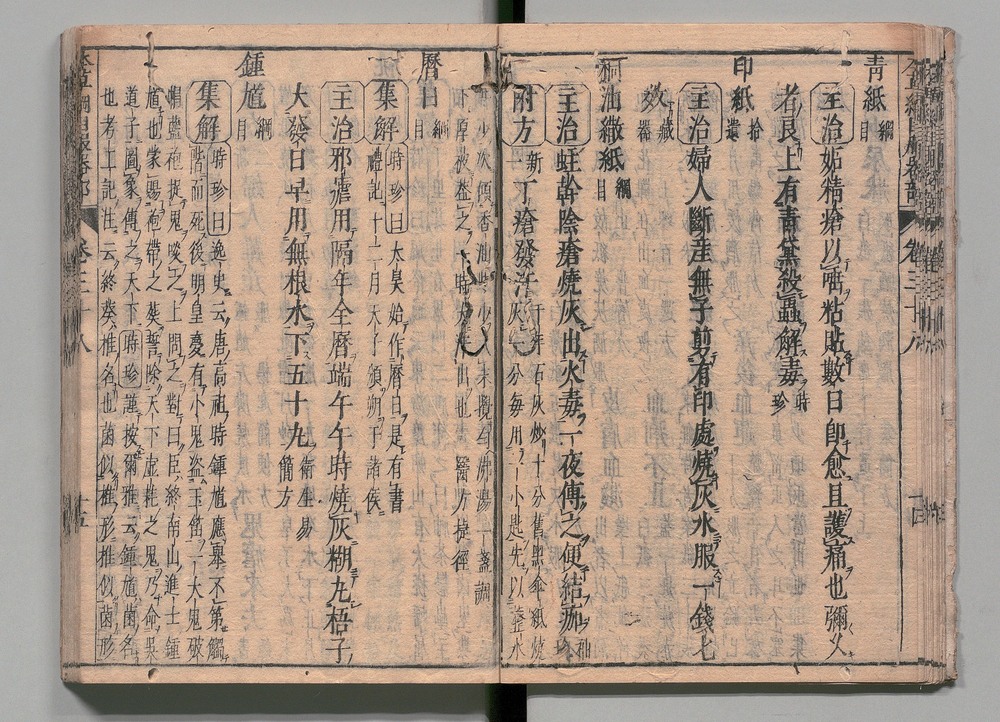 青紙綱目
主治妬精瘡以唾粘貼數日即愈且護痛也彌久
者良上有青黛殺蟲解毒時珍
印紙拾遺
主治婦人斷産無子剪有印處燒灰水服一錢匕
效藏器
桐油繖紙綱目
主治蛀幹陰瘡燒灰出火毒一夜傅之便結痂
附方新一丁瘡發汗千年石灰炒十分舊黑傘紙燒灰一分每用一小匙先以虀水
些少次傾香油些少入末攪勻沸湯一盞調
下厚被蓋之一時大汗出也醫方捷徑
曆日綱目
集解時珍曰太昊始作曆日是有書
禮記十二月天子頒朔于諸侯
主治邪瘧用隔年全曆端午午時燒灰糊丸梧子
大發日早用無根水下五十丸衛生易簡方
鍾馗綱目
集解時珍曰逸史云唐高祖時鍾馗應舉不第觸
階而死後明皇夢有小鬼盜玉笛一大鬼破
帽藍袍捉鬼啖之上問之對曰臣終南山進士鍾
馗也蒙賜袍帶之葬誓除天下虛耗之鬼乃命吳
道子圖象傳之天下時珍謹按爾雅云鍾馗菌名
也考工記注云終葵椎名也菌似椎形椎似菌形